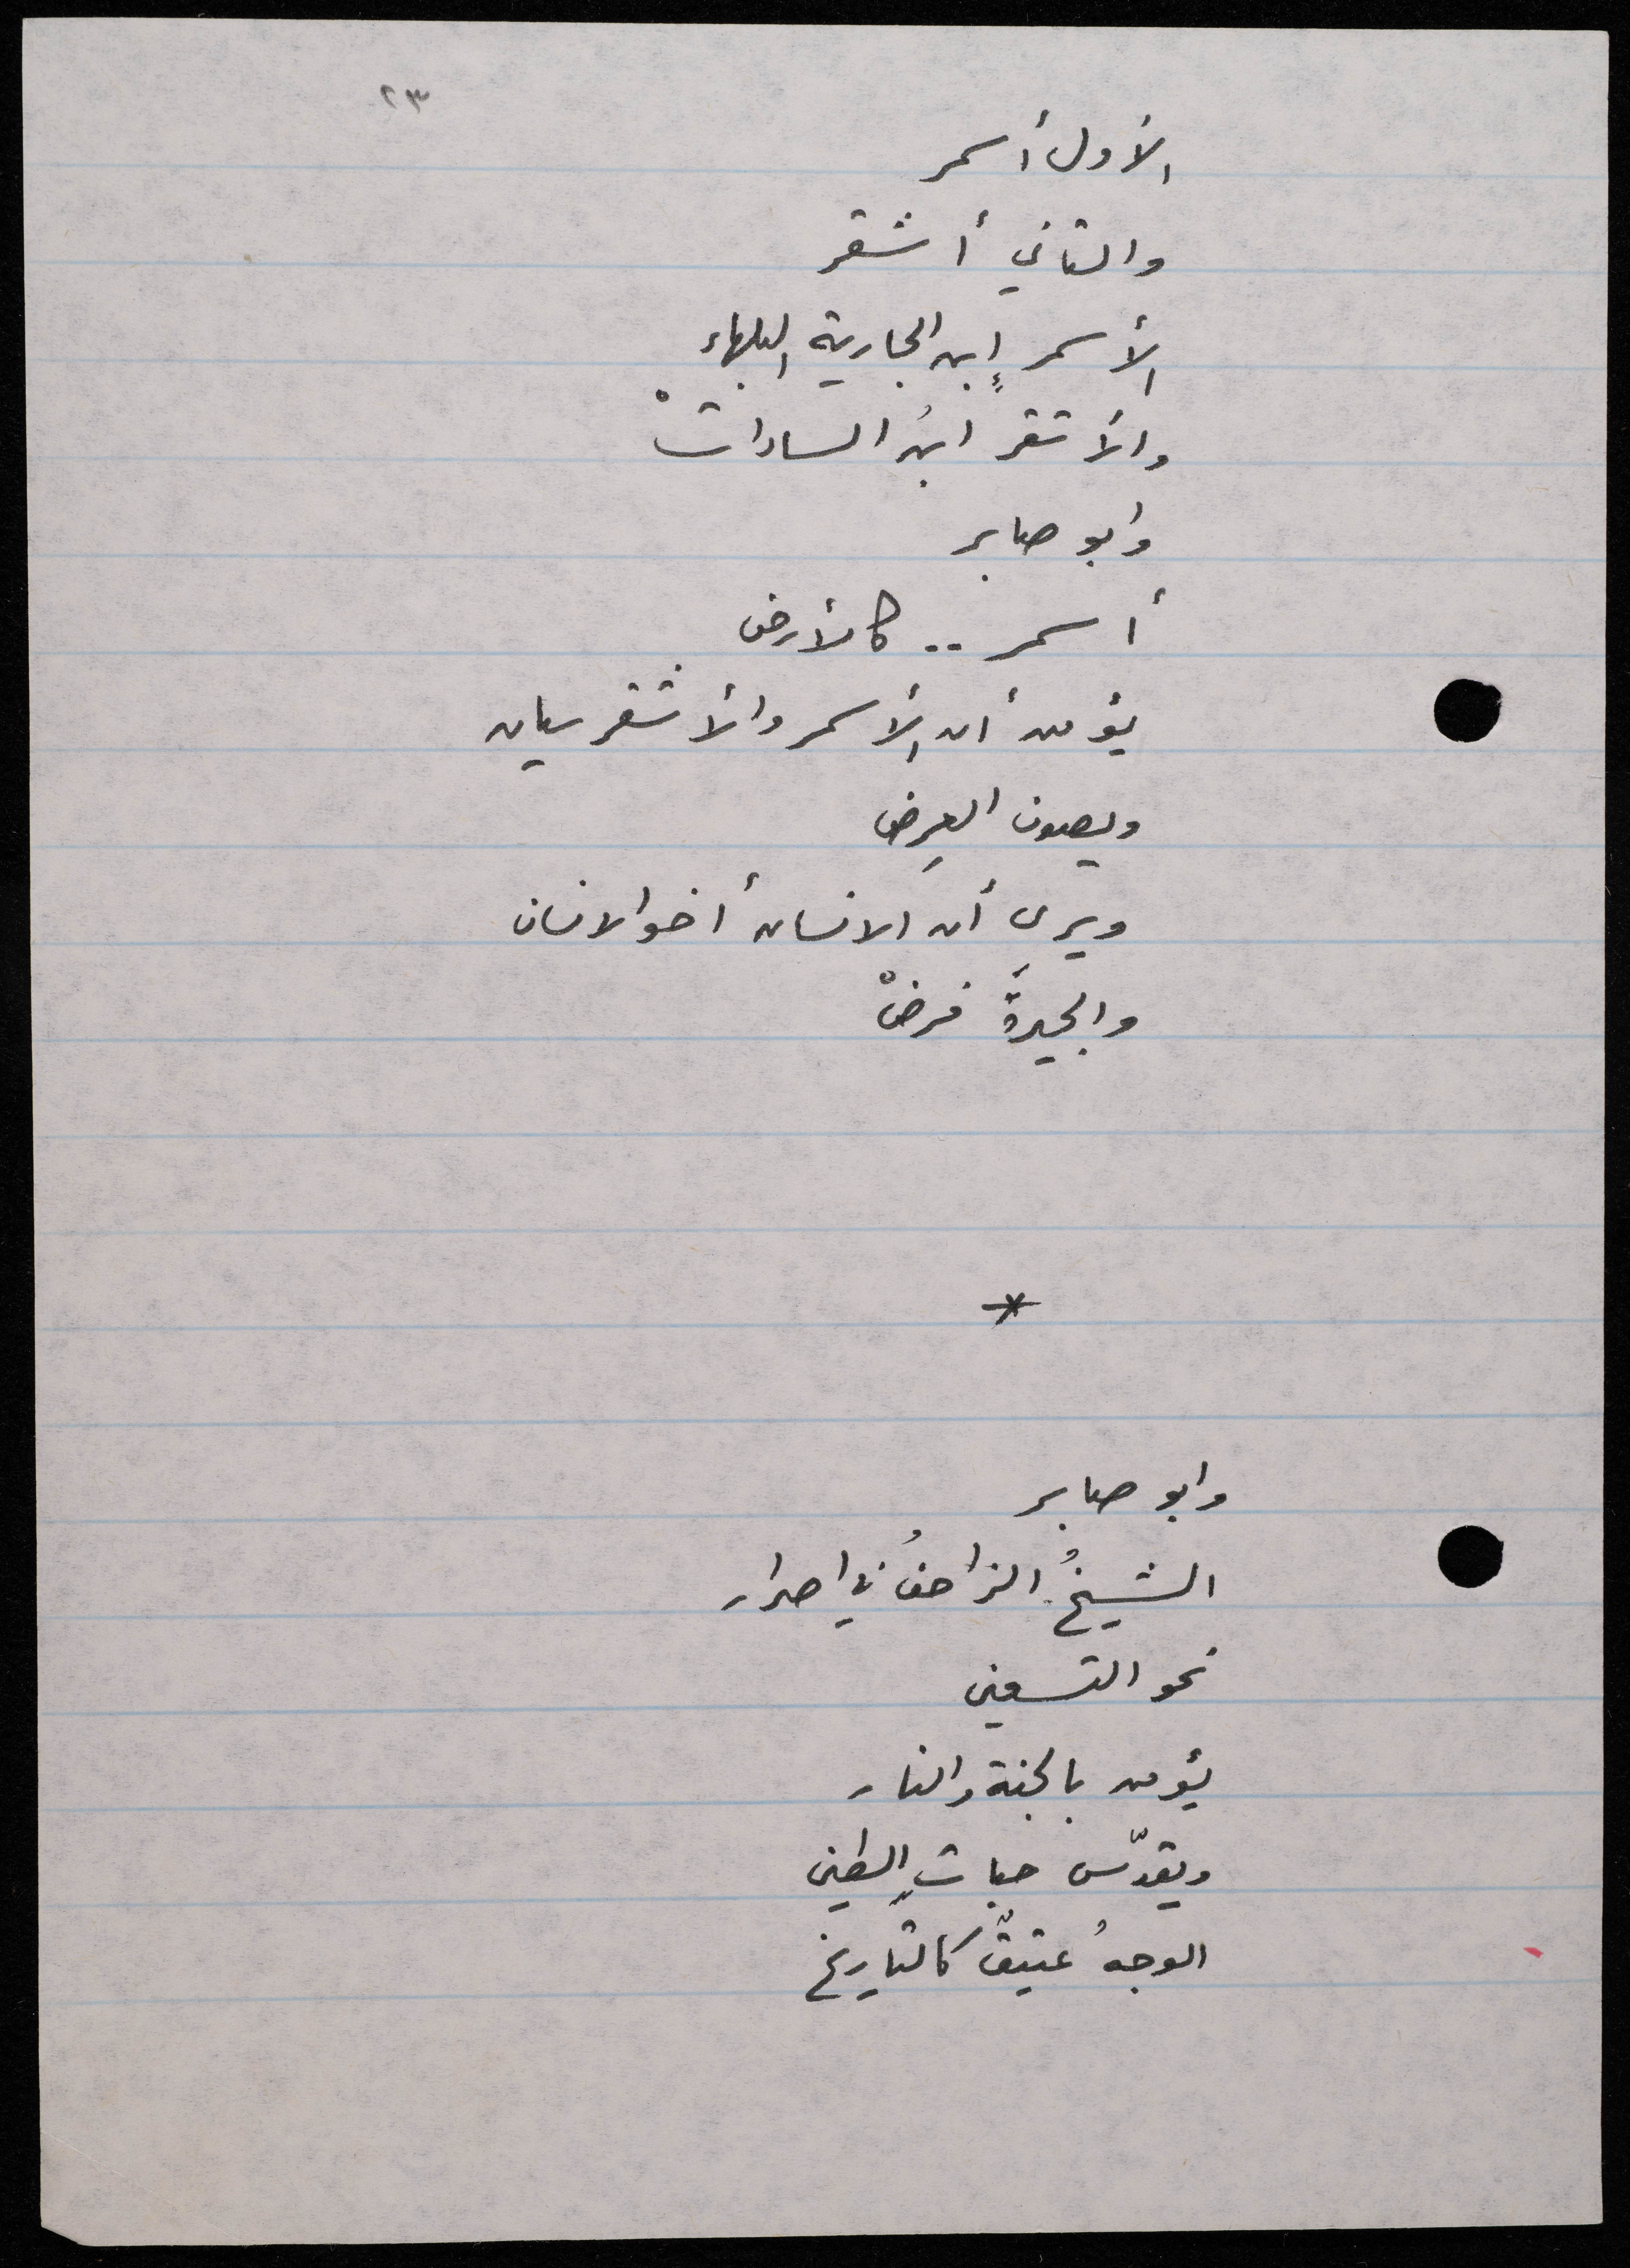 ٢٣
الأول أسمر
والثاني أشقر
الأسمر إبن الجارية البلهاء
والأشقر ابنُ الساداتْ
وابو صابر
أسمر .. كالأرض
يؤمن أن الأسمر والأشقر سيان
ويصون العِرض
ويرى أن الانسان أخو الانسان
والجيرةَ فرضْ
*
وابو صابر
الشيخُ الزاحفُ في اصرار
نحو التسعين
يؤمن بالجنة والنار
ويقدّس حباتِ الطين
الوجهُ عتيقٌ كالتاريخ